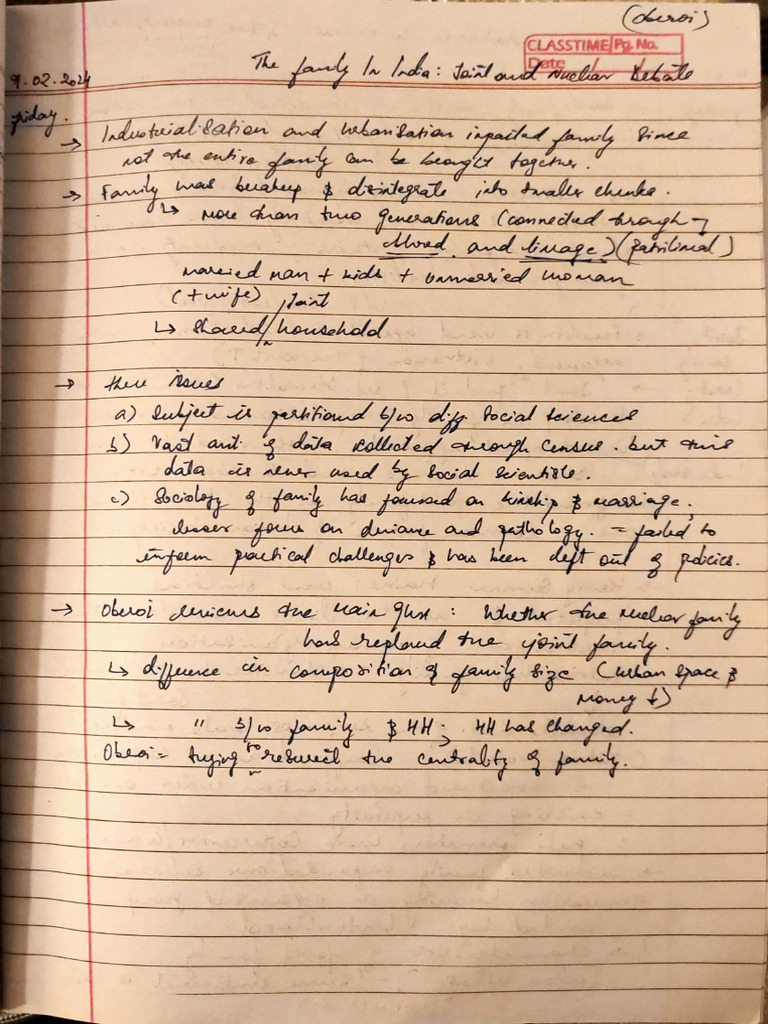 (Oberoi)
CLASSTIME Pg. No.
Date / /
9.02.2024
The family In India: Joint and Nuclear Debate
Friday.
→ Industrialisation and urbanisation impacted family since
not the entire family can be brought together.
→ Family was breakup & disintegrate into smaller chunks.
↳ more than two generations (connected through
blood and lineage) (patrilineal)
married man + kids + unmarried woman
(+ wife) Joint
↳ shared / household
→ three issues
a) Subject is partitioned b/w diff social sciences
b) Vast amt. of data collected through census. but this
data is never used by social scientists.
c) Sociology of family has focussed on kinship & marriage,
lesser focus on deviance and pathology. = failed to
inform practical challenges & has been left out of policies.
→ Oberoi reviews the main qhst : whether the nuclear family
has replaced the joint family.
↳ difference in composition of family size (urban space &
money ↓)
↳ " b/w family & HH; HH has changed.
Oberoi = trying to resurrect the centrality of family.